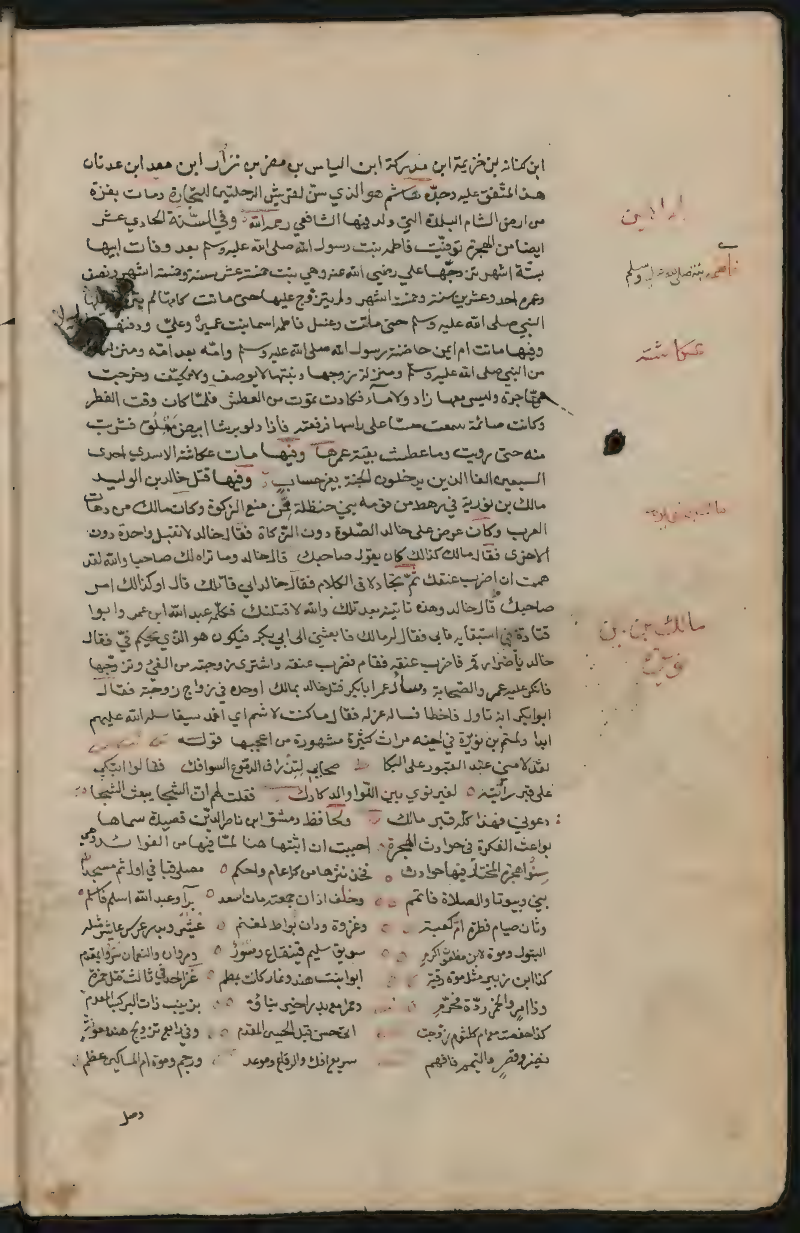 ابن كنانه بن خزيمة ابن مدركة ابن الياس بن مضر بن نزار ابن معد ابن عدنان
هذا المتفق عليه وجده هاشم هو الذي سن لقريش الرحلتين للتجارة ومات بغزة
من ارض الشام البلدة التي ولد فيها الشافعي رحمه الله وفي السنة الحادي عشر
ايضا من الهجرة توفيت فاطمه بنت رسول الله صلى الله عليه وسلم بعد وفات ابيها
بستة اشهر تزوجها علي رضي الله عنه وهي بنت خمسة عشر سنة وخمسة اشهر ونصف
وعمره احد وعشرين سنة وخمسة اشهر ولم يتزوج عليها حتى ماتت كامها لم يتزوج عليها
النبي صلى الله عليه وسلم حتى ماتت وغسل فاطمه اسما بنت عميس وعلي ودفنها
وفيها ماتت ام ايمن حاضنة رسول الله صلى الله عليه وسلم وامه بعد امه
من النبي صلى الله عليه وسلم ومنزلة زوجها وبنتها لا يوصف ولا يكيف وخرجت
مهاجرة وليس معها زاد ولا ماء فكادت تموت من العطش فلما كان وقت الفطر
وكانت صائمة سمعت حسا على راسها فرفعته فاذا دلو برشا ابيض معلق فشربت
منه حتى رويت وما عطشت بقية عمرها وفيها مات عكاشة الاسدي احدى
السبعين الفا الذين يدخلون الجنة بغير حساب وفيها قتل خالد بن الوليد
مالك بن نويرة في رهط من قومه بني حنظلة فمن منع الزكوة وكان مالك من دهات
العرب وكان عرض على خالد الصلوة دون الزكاة فقال خالد لا تقبل واحدة دون
الاخرى فقال مالك كذالك كان يقول صاحبك قال خالد وما تراه لك صاحبا والله لقد
هممت ان اضرب عنقك ثم تجادلا في الكلام فقال خالد اني قاتلك قال او كذالك امر
صاحبك قال خالد وهذه ثانية بعد تلك والله لاقتلنك فكلم عبد الله ابن عمر وابوا
قتادة في استبقايه فابى فقال له مالك فابعثني الى ابي بكر فيكون هو الذي يحكم في فقال
خالد ياضرار قم فاضرب عنقه فقام فضرب عنقه واشترى زوجته من الفي وتزوجها
فانكر عليه عمر والصحابة وسال عمر ابابكر قتل خالد بمالك اوحده في زواج زوجته فقال
ابوابكر انه تاول فاخطا فساله عزله فقال ما كنت لاشم اي اغمد سيفا سله الله عليهم
ابدا ولمتمم بن نويرة في اخيه مراث كثيرة مشهورة من اعجبها قوله
لقد لامني عند القبور على البكا صحابي لتذراف الدموع السوافك فقالوا اتبكي
على قبر رأيته لقبر ثوى بين اللوا والدكادك فقلت لهم ان الشجا يبعث الشجا
دعوني فهذا كله قبر مالك ولحافظ دمشق ابن ناصر الدين قصيدة سماها
بواعث الفكرة في حوادث الهجرة احببت ان اثبتها هنا لما فيها من الفوايد وهي
فيها حوادث فخذ نثرها من كل عام واحكم مصلى قبا في اول ثم مسجدا
بني وبيوتا والصلاة فاتمم وخلف اذان جمعة مات اسعد برآ وعبد الله اسلم فاسلم
وثان صيام فطرة ام كعبة وغزوة ودان بواط لمغنم
البتول وموت لابن مظعون اكرم سويق سليم قينقاع
كذا ابن زبير مثل موت رقية ابوا بنت هند وعمار كان بطم غزا احد في ثالث قتل حمزة
وذا امر والخمر ردة محرم بزينب ذات البر
كذا حفصة معها ام كلثوم زوجت اتى حسن قبل الحسين المقدم وفي رابع تزويج هند
نضير وقصر والتيمم فافهم سريع افك والرقاع وموعد ورجم وموت ام المساكين عظم
وصل
ام ايمن
فاطمه بنته صلى الله عليه وسلم
عكاشة
مالك بن نويرة
مالك بن
نويرة